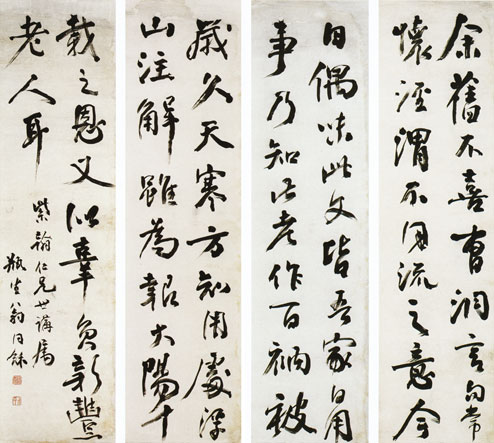 余舊不喜曹洞言句常
懷涇渭不同流之意今
日偶味此文皆吾家日用
事乃知此老作百衲被
歲久天寒方知用處浮
山注解雖為報大陽十
載之恩又似辜負新豐
老人耳
紫翰仁兄世講屬
瓶生翁同龢